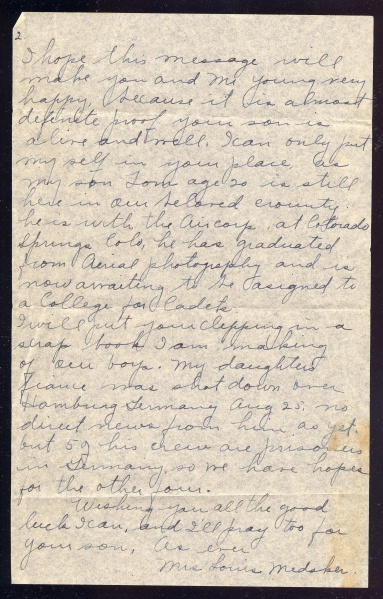 2
I hope this message will
make you and Mr Young very
happy, because it is almost
definite proof your son is
alive and well. I can only put
my self in your place as
my son Tom age 20 is still
here in our beloved crounty.
he is with the Aircorp, at Colorado
Springs Colo, he has graduated
from Aerial photography and is
now awaiting to be asigned to
a College for Cadets
I will put your clipping in a
strap book I am making
of our boys. My daughters
fiance was shot down over
Hamburg Germany Aug 25. no
direct news from him as yet
but 5 of his crew are prisoners
in Germany, so we have hopes
for the other four.
Wishing you all the good
luck I can, and I'll pray too for
your son, As ever
Mrs Louis Medsker.